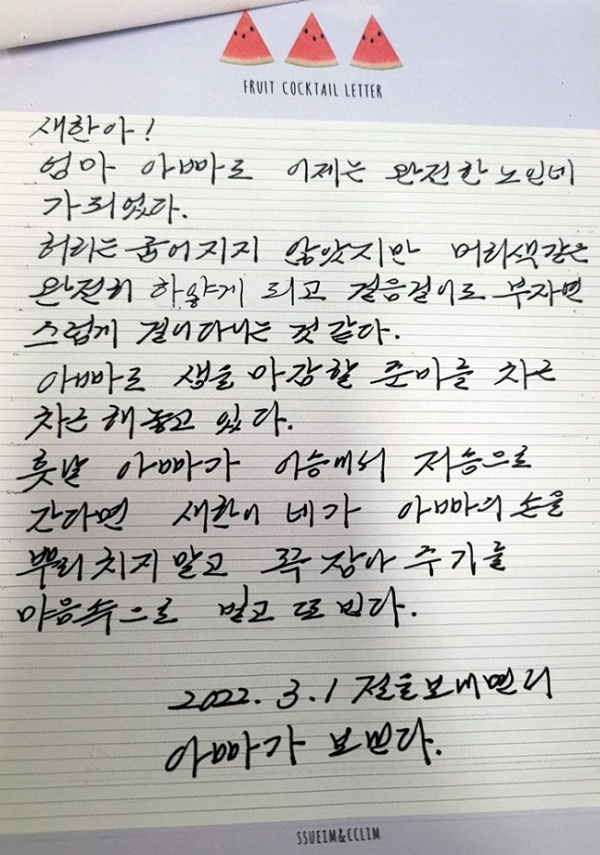 FRUIT COCKTAIL LETTER
새한아!
엄마 아빠도 이제는 완전한 노인네
가 되었다.
허리는 굽어지지 않았지만 머리색깔은
완전히 하얗게 되고 걸음걸이도 부자연
스럽게 걸어다니는 것 같다.
아빠도 생을 마감할 준비를 차근
차근 해놓고 있다.
훗날 아빠가 이승에서 저승으로
간다면 새한이 네가 아빠의 손을
뿌리치지 말고 꼭 잡아 주기를
마음속으로 빌고 또 빈다.
2022. 3. 1 절을 보내면서
아빠가 보낸다.
SSUEIM&CCLIM